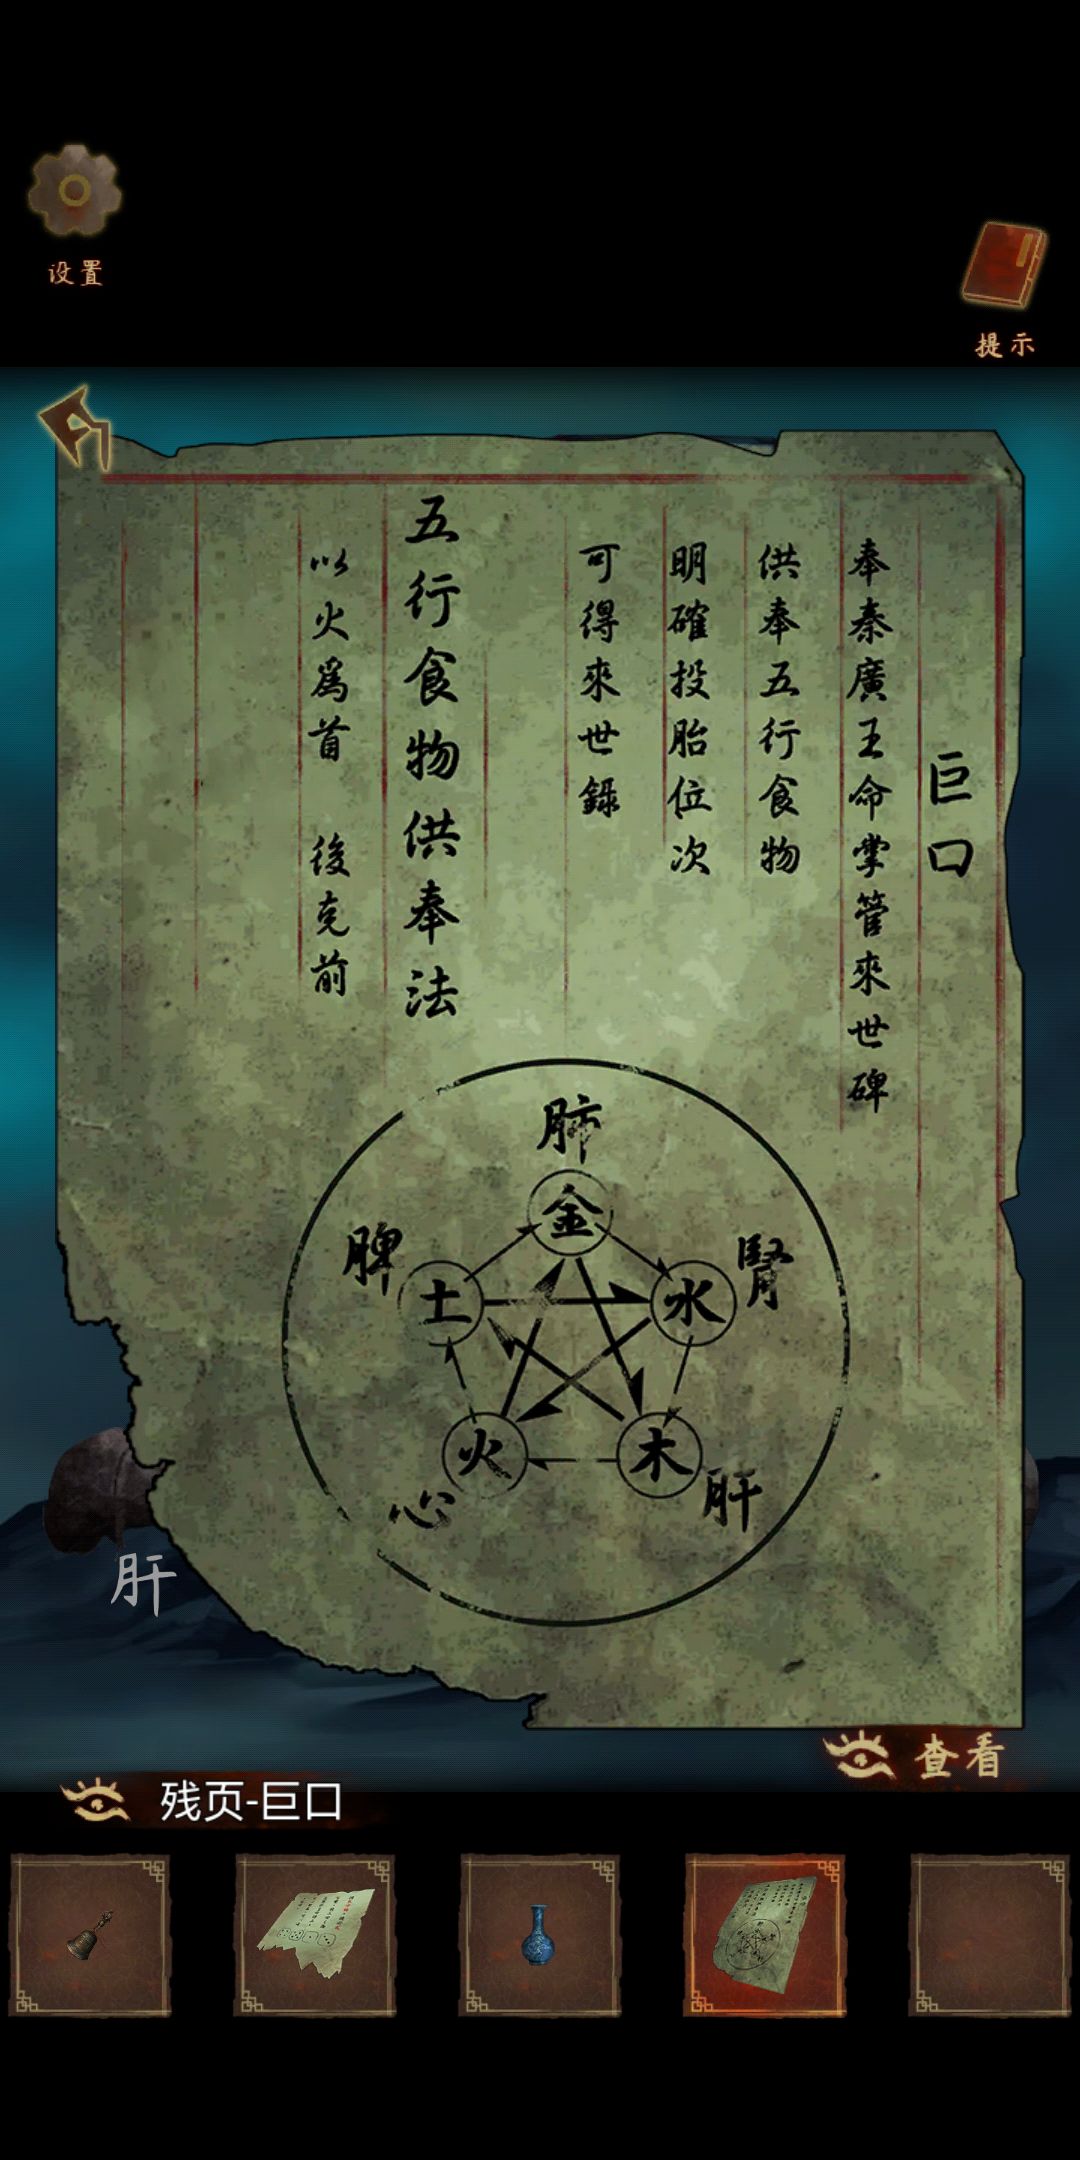 设置
提示
巨口
奉秦廣王命掌管來世碑
供奉五行食物
明確投胎位次
可得來世錄
五行食物供奉法
以火爲首 後克前
肺
金
脾
土
水
腎
火
木
心
肝
肝
查看
残页-巨口